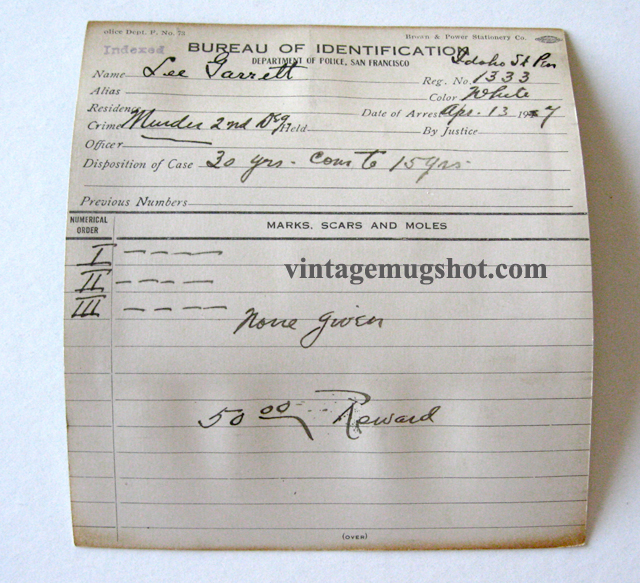 olice Dept. F. No. 78 Brown & Power Stationery Co.
Indexed
BUREAU OF IDENTIFICATION Idaho St Pen
DEPARTMENT OF POLICE, SAN FRANCISCO
Name Lee Garrett Reg. No. 1333
Alias Color White
Residence Date of Arrest Apr. 13 7
Crime Murder 2nd Deg Held By Justice
Officer
Disposition of Case 30 yrs. Com to 15 yrs.
Previous Numbers
NUMERICAL ORDER MARKS, SCARS AND MOLES
I ----
II ----
III ----
vintagemugshot.com
None given
50 00 Reward
(OVER)